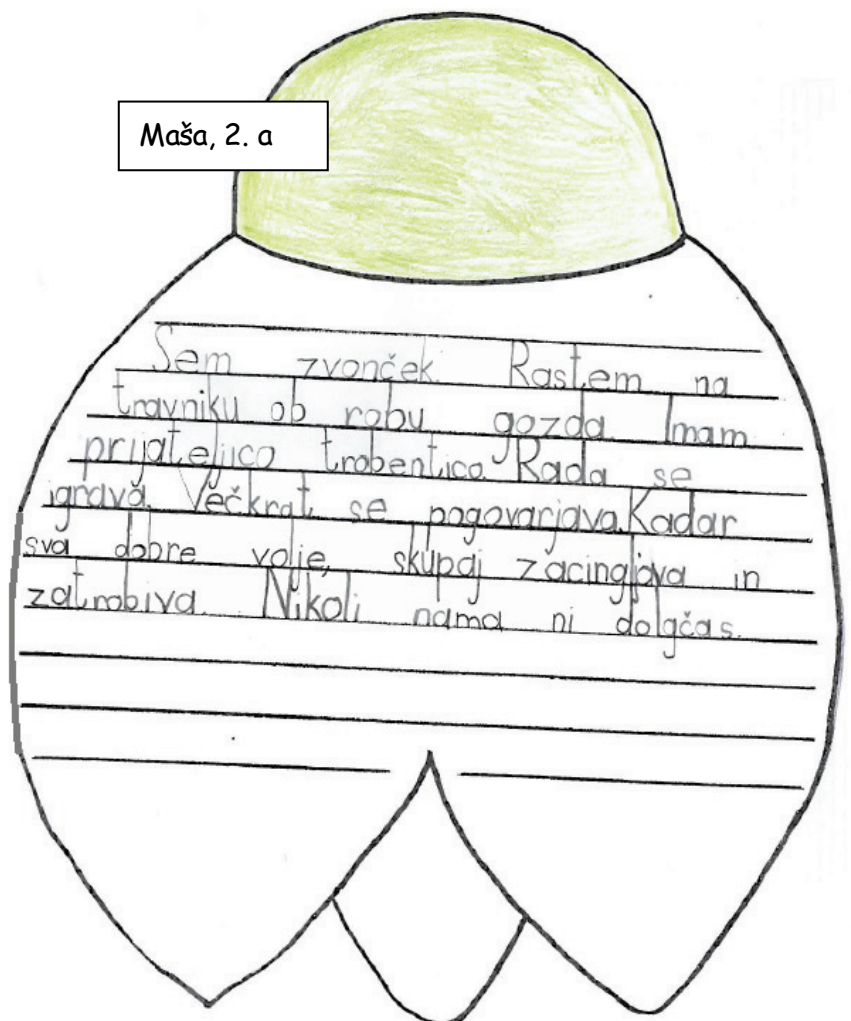 Maša, 2. a
Sem zvonček. Rastem na
travniku ob robu gozda. Imam
prijateljico trobentico. Rada se
igrava. Večkrat se pogovarjava. Kadar
sva dobre volje, skupaj zacingljava in
zatrobiva. Nikoli nama ni dolgčas.